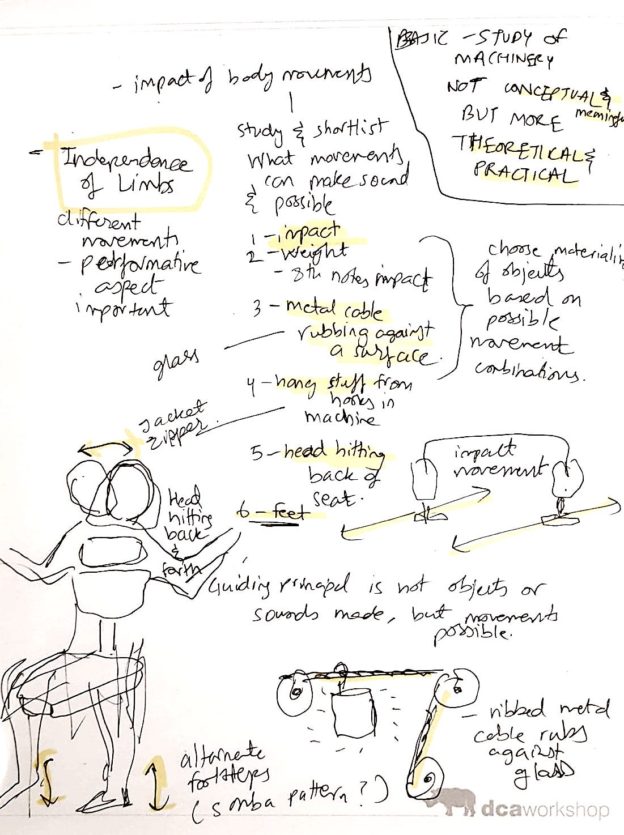 BASIC - STUDY OF
MACHINERY
NOT CONCEPTUAL &
meaningful
BUT MORE
THEORETICAL &
PRACTICAL
- impact of body movements
study & shortlist
what movements
can make sound
& possible
1 - impact
2 - weight
- 8th notes impact
3 - metal cable
rubbing against
a surface.
4 - hang stuff from
hooks in
machine
5 - head hitting
back of
seat.
6 - feet
- Independence
of Limbs
different
movements
- performative
aspect
important
glass
jacket
zipper.
choose materiality
of objects
based on
possible
movement
combinations.
impact
movement
Head
hitting
back
&
forth
Guiding principal is not objects or
sounds made, but movements
possible.
alternate
footsteps
(samba pattern?)
- ribbed metal
cable rubs
against
glass
dcaworkshop